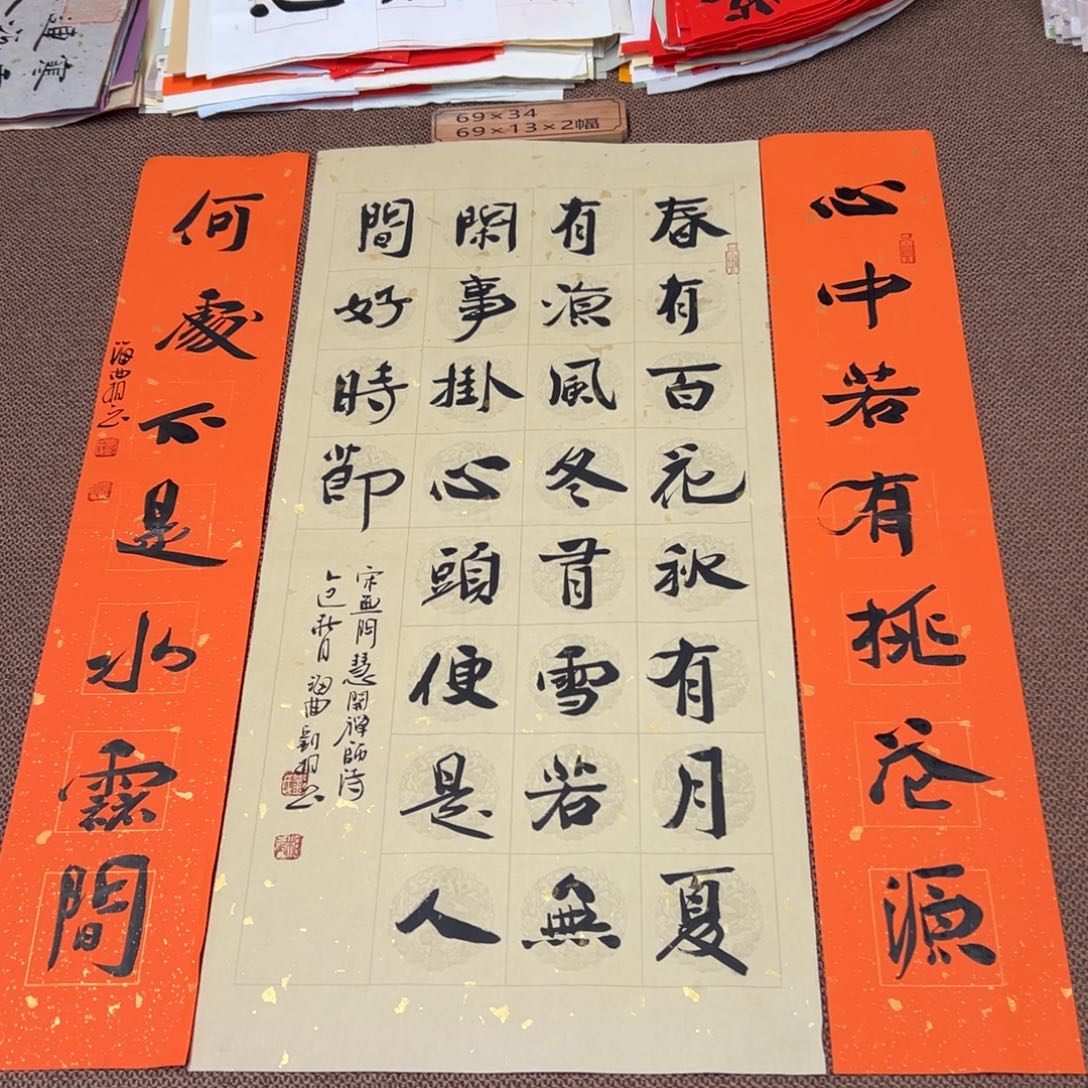 69×34
69×13×2幅
心中若有桃花源
春有百花秋有月夏
有涼風冬有雪若無
閑事掛心頭便是人
間好時節
宋無門慧開禪師詩
乙巳秋月海曲劉
何處不是水雲間
海曲
心